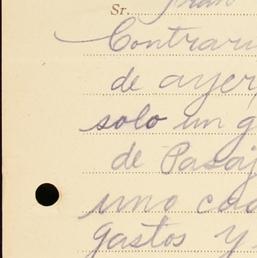 Sr. Juan
Contrari
de ayer
solo un g
de Pasaj
uno cad
gastos y